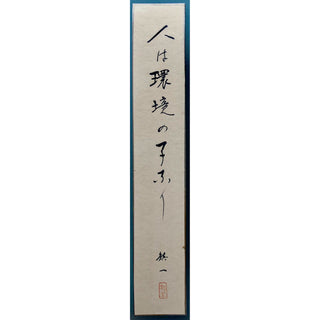 人は環境の子なり